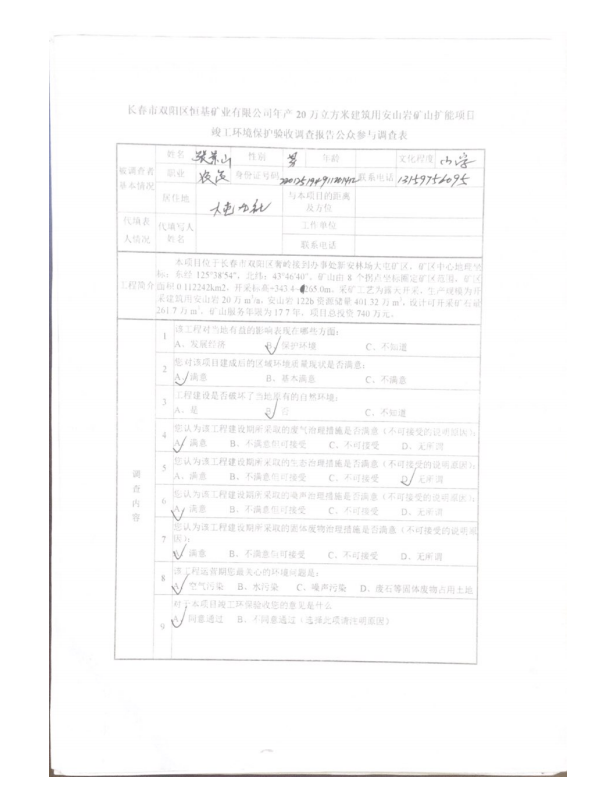 长春市双阳区恒基矿业有限公司年产 20 万立方米建筑用安山岩矿山扩能项目
竣工环境保护验收调查报告公众参与调查表
被调查者基本情况 姓名 性别 男 年龄 文化程度 小学
职业 农民 身份证号码 联系电话 13159756095
居住地 与本项目的距离及方位
代填表人情况 代填写人姓名 工作单位
联系电话
工程简介
本项目位于长春市双阳区奢岭街到办事处新安林场大屯矿区。矿区中心地理坐
标：东经 125°38′54″，北纬：43°46′40″。矿山由 8 个拐点坐标圈定矿区范围，矿区
面积 0.112242km2。开采标高+343.4- 265.0m。采矿工艺为露天开采。生产规模为开
采建筑用安山岩 20 万 m³/a。安山岩 122b 资源储量 401.32 万 m³，设计可开采矿石量
261.7 万 m³，矿山服务年限为 17.7 年。项目总投资 740 万元。
调查内容
1 该工程对当地有益的影响表现在哪些方面：
A、发展经济 B、保护环境 C、不知道
2 您对该项目建成后的区域环境质量现状是否满意：
A、满意 B、基本满意 C、不满意
3 工程建设是否破坏了当地原有的自然环境：
A、是 B、否 C、不知道
4 您认为该工程建设期所采取的废气治理措施是否满意（不可接受的说明原因）：
A、满意 B、不满意但可接受 C、不可接受 D、无所谓
5 您认为该工程建设期所采取的生态治理措施是否满意（不可接受的说明原因）：
A、满意 B、不满意但可接受 C、不可接受 D、无所谓
6 您认为该工程建设期所采取的噪声治理措施是否满意（不可接受的说明原因）：
A、满意 B、不满意但可接受 C、不可接受 D、无所谓
7 您认为该工程建设期所采取的固体废物治理措施是否满意（不可接受的说明原
因）：
A、满意 B、不满意但可接受 C、不可接受 D、无所谓
8 该工程运营期您最关心的环境问题是：
A、空气污染 B、水污染 C、噪声污染 D、废石等固体废物占用土地
9 对于本项目竣工环保验收您的意见是什么
A、同意通过 B、不同意通过（选择此项请注明原因）